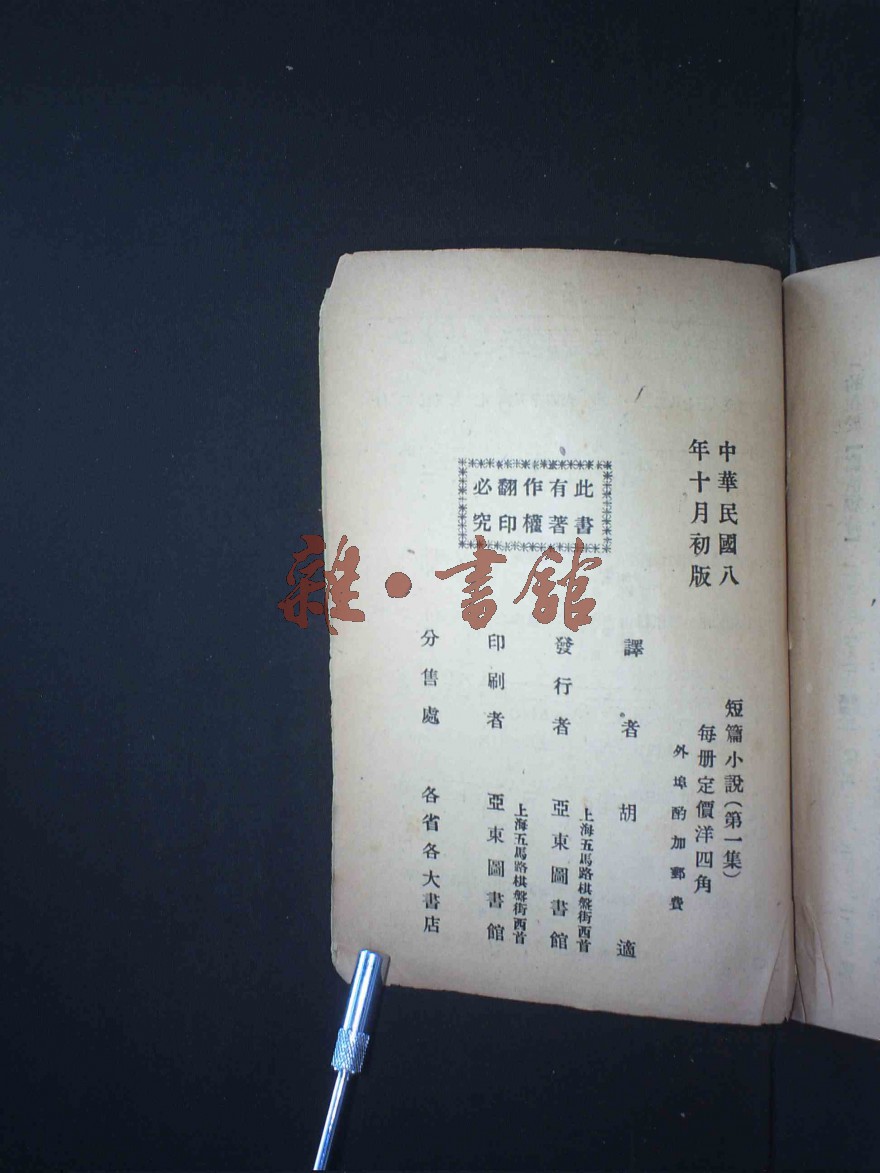 中華民國八
年十月初版
此書
有著
作權
翻印
必究
短篇小說（第一集）
每册定價洋四角
外埠酌加郵費
譯者 胡適
上海五馬路棋盤街西首
發行者 亞東圖書館
上海五馬路棋盤街西首
印刷者 亞東圖書館
分售處 各省各大書店
雜·書舘